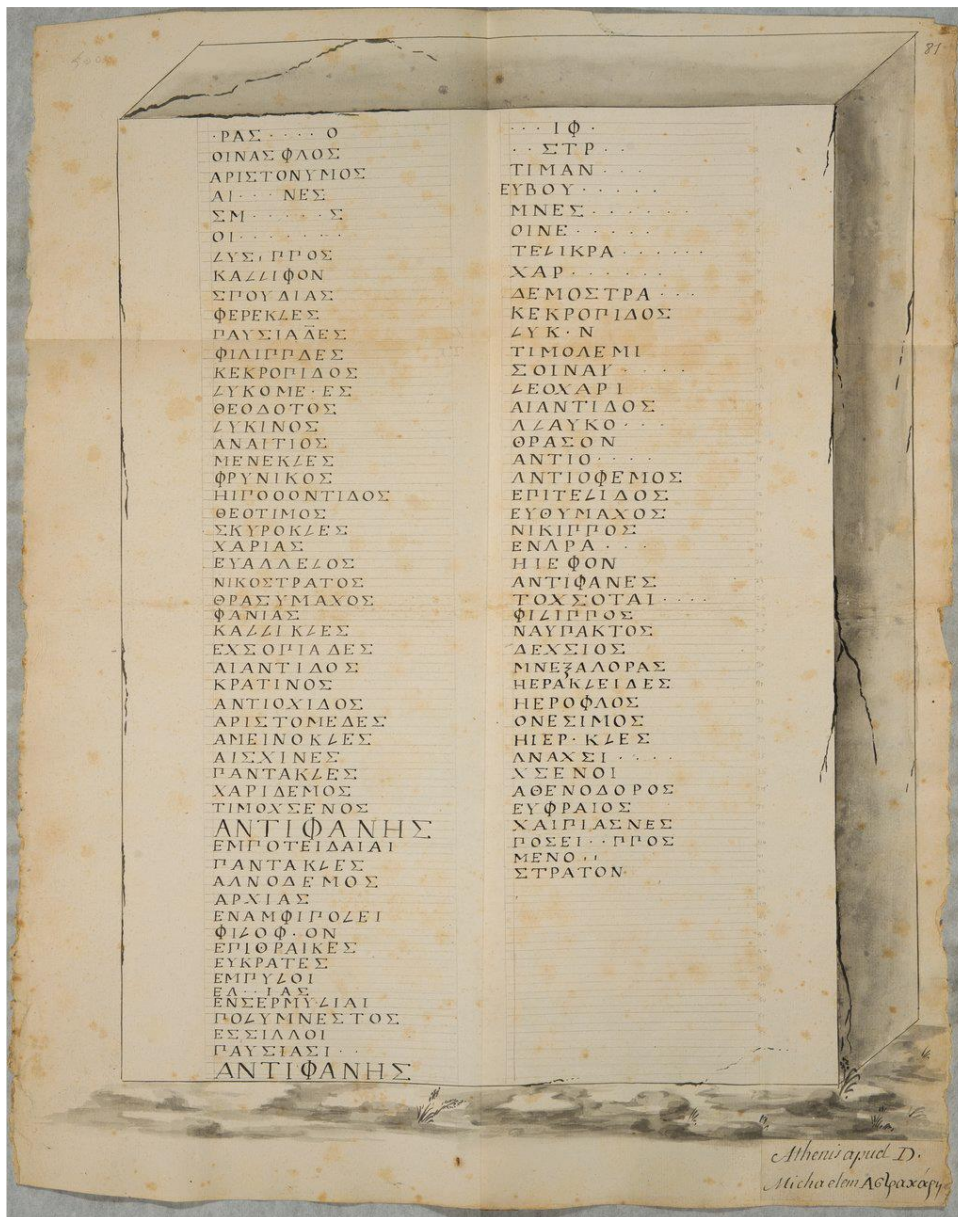 81
·ΡΑΣ····Ο
ΟΙΝΑΣΦΛΟΣ
ΑΡΙΣΤΟΝΥΜΟΣ
ΑΙ···ΝΕΣ
ΣΜ·····Σ
ΟΙ·······
ΛΥΣΙΠΠΟΣ
ΚΑΛΛΙΦΟΝ
ΣΠΟΥΔΙΑΣ
ΦΕΡΕΚΛΕΣ
ΠΑΥΣΙΑΔΕΣ
ΦΙΛΙΠΠΔΕΣ
ΚΕΚΡΟΠΙΔΟΣ
ΛΥΚΟΜΕ·ΕΣ
ΘΕΟΔΟΤΟΣ
ΛΥΚΙΝΟΣ
ΑΝΑΙΤΙΟΣ
ΜΕΝΕΚΛΕΣ
ΦΡΥΝΙΚΟΣ
ΗΙΠΟΟΟΝΤΙΔΟΣ
ΘΕΟΤΙΜΟΣ
ΣΚΥΡΟΚΛΕΣ
ΧΑΡΙΑΣ
ΕΥΑΛΛΕΛΟΣ
ΝΙΚΟΣΤΡΑΤΟΣ
ΘΡΑΣΥΜΑΧΟΣ
ΦΑΝΙΑΣ
ΚΑΛΛΙΚΛΕΣ
ΕΧΣΟΠΙΑΔΕΣ
ΑΙΑΝΤΙΔΟΣ
ΚΡΑΤΙΝΟΣ
ΑΝΤΙΟΧΙΔΟΣ
ΑΡΙΣΤΟΜΕΔΕΣ
ΑΜΕΙΝΟΚΛΕΣ
ΑΙΣΧΙΝΕΣ
ΠΑΝΤΑΚΛΕΣ
ΧΑΡΙΔΕΜΟΣ
ΤΙΜΟΧΣΕΝΟΣ
ΑΝΤΙΦΑΝΗΣ
ΕΜΠΟΤΕΙΔΑΙΑΙ
ΠΑΝΤΑΚΛΕΣ
ΑΛΝΟΔΕΜΟΣ
ΑΡΧΙΑΣ
ΕΝΑΜΦΙΠΟΛΕΙ
ΦΙΛΟΦ·ΟΝ
ΕΠΙΘΡΑΙΚΕΣ
ΕΥΚΡΑΤΕΣ
ΕΜΠΥΛΟΙ
ΕΛ··ΙΑΣ
ΕΝΣΕΡΜΥΛΙΑΙ
ΠΟΛΥΜΝΕΣΤΟΣ
ΕΣΣΙΛΛΟΙ
ΠΑΥΣΙΑΣΙ··
ΑΝΤΙΦΑΝΗΣ
···ΙΦ·
··ΣΤΡ··
ΤΙΜΑΝ···
ΕΥΒΟΥ·····
ΜΝΕΣ······
ΟΙΝΕ·····
ΤΕΛΙΚΡΑ······
ΧΑΡ······
ΔΕΜΟΣΤΡΑ···
ΚΕΚΡΟΠΙΔΟΣ
ΛΥΚ·Ν
ΤΙΜΟΛΕΜΙ
ΣΟΙΝΑΙ····
ΛΕΟΧΑΡΙ
ΑΙΑΝΤΙΔΟΣ
ΛΛΑΥΚΟ···
ΘΡΑΣΟΝ
ΑΝΤΙΟ····
ΑΝΤΙΟΦΕΜΟΣ
ΕΠΙΤΕΛΙΔΟΣ
ΕΥΘΥΜΑΧΟΣ
ΝΙΚΙΠΠΟΣ
ΕΝΛΡΑ···
ΗΙΕΦΟΝ
ΑΝΤΙΦΑΝΕΣ
ΤΟΧΣΟΤΑΙ····
ΦΙΛΙΠΠΟΣ
ΝΑΥΠΑΚΤΟΣ
ΔΕΧΣΙΟΣ
ΜΝΕξΑΛΟΡΑΣ
ΗΕΡΑΚΛΕΙΔΕΣ
ΗΕΡΟΦΛΟΣ
ΟΝΕΣΙΜΟΣ
ΗΙΕΡ·ΚΛΕΣ
ΑΝΑΧΣΙ····
ΧΣΕΝΟΙ
ΑΘΕΝΟΔΟΡΟΣ
ΕΥΦΡΑΙΟΣ
ΧΑΙΠΙΑΣΝΕΣ
ΠΟΣΕΙ··ΠΠΟΣ
ΜΕΝΟ··
ΣΤΡΑΤΟΝ
Athenis apud D.
Michaelem